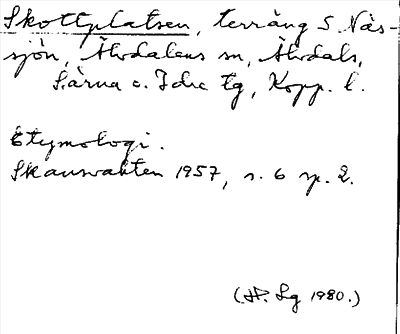 Skottplatsen, terräng S Näs-
sjön, Älvdalens sn, Älvdals,
Särna o. Idre tg, Kopp. l.
Etymologi.
Skansvakten 1957, s. 6 sp. 2.
(H. Lg 1980.)